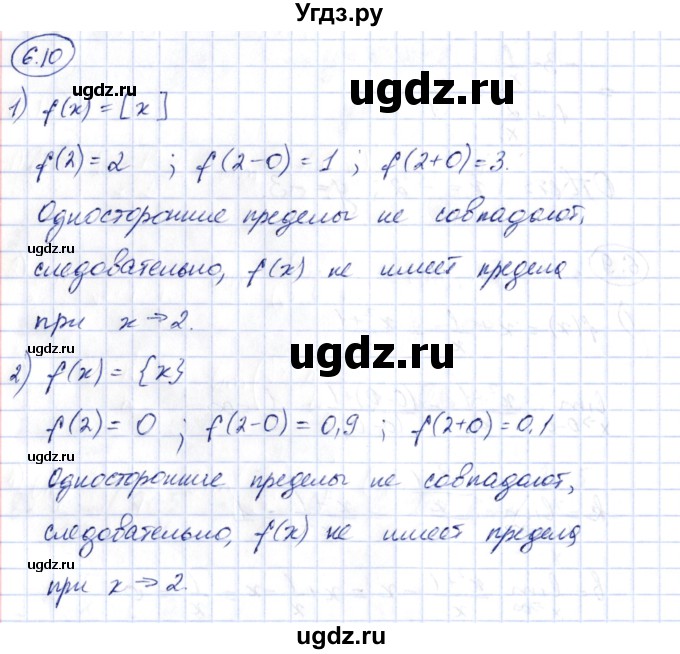 Угдз.ру
6.10
ugdz.ru
1) f(x) = [x]
f(2) = 2 ; f(2-0) = 1 ; f(2+0) = 3.
Односторонние пределы не совпадают,
ugdz.ru
следовательно, f(x) не имеет предела
при x → 2.
ugdz.ru
ugdz.ru
2) f(x) = {x}
f(2) = 0 ; f(2-0) = 0,9 ; f(2+0) = 0,1
ugdz.ru
Односторонние пределы не совпадают,
следовательно, f(x) не имеет предела
ugdz.ru
при x → 2.
ugdz.ru